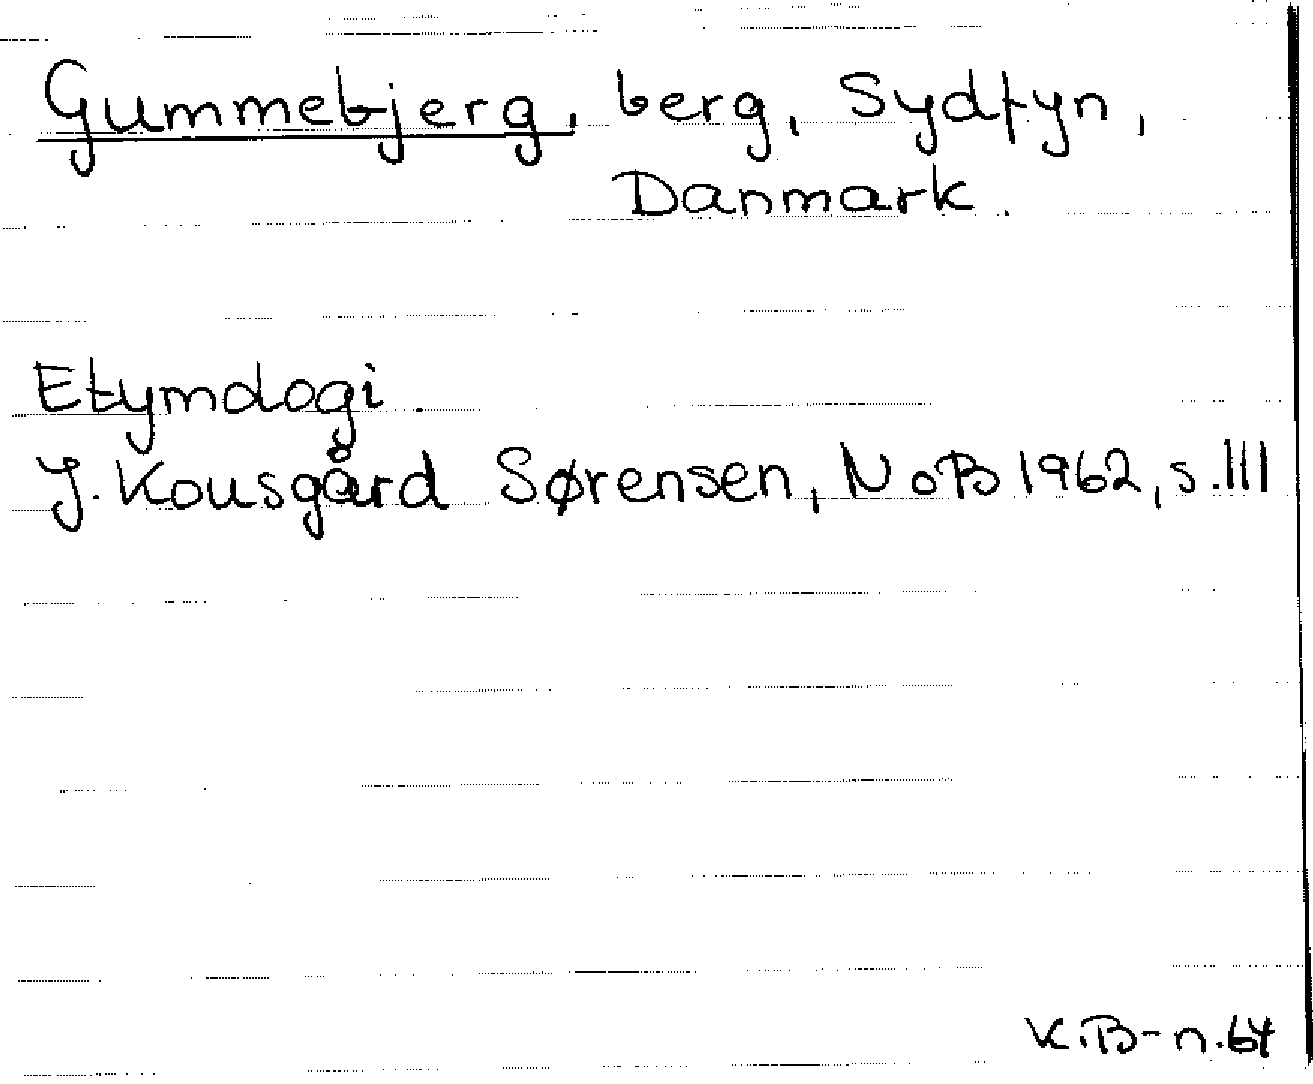 Gummebjerg, berg, Sydfyn,
Danmark.
Etymologi
J. Kousgård Sørensen, NoB 1962, s. 111
K.B-n. 64